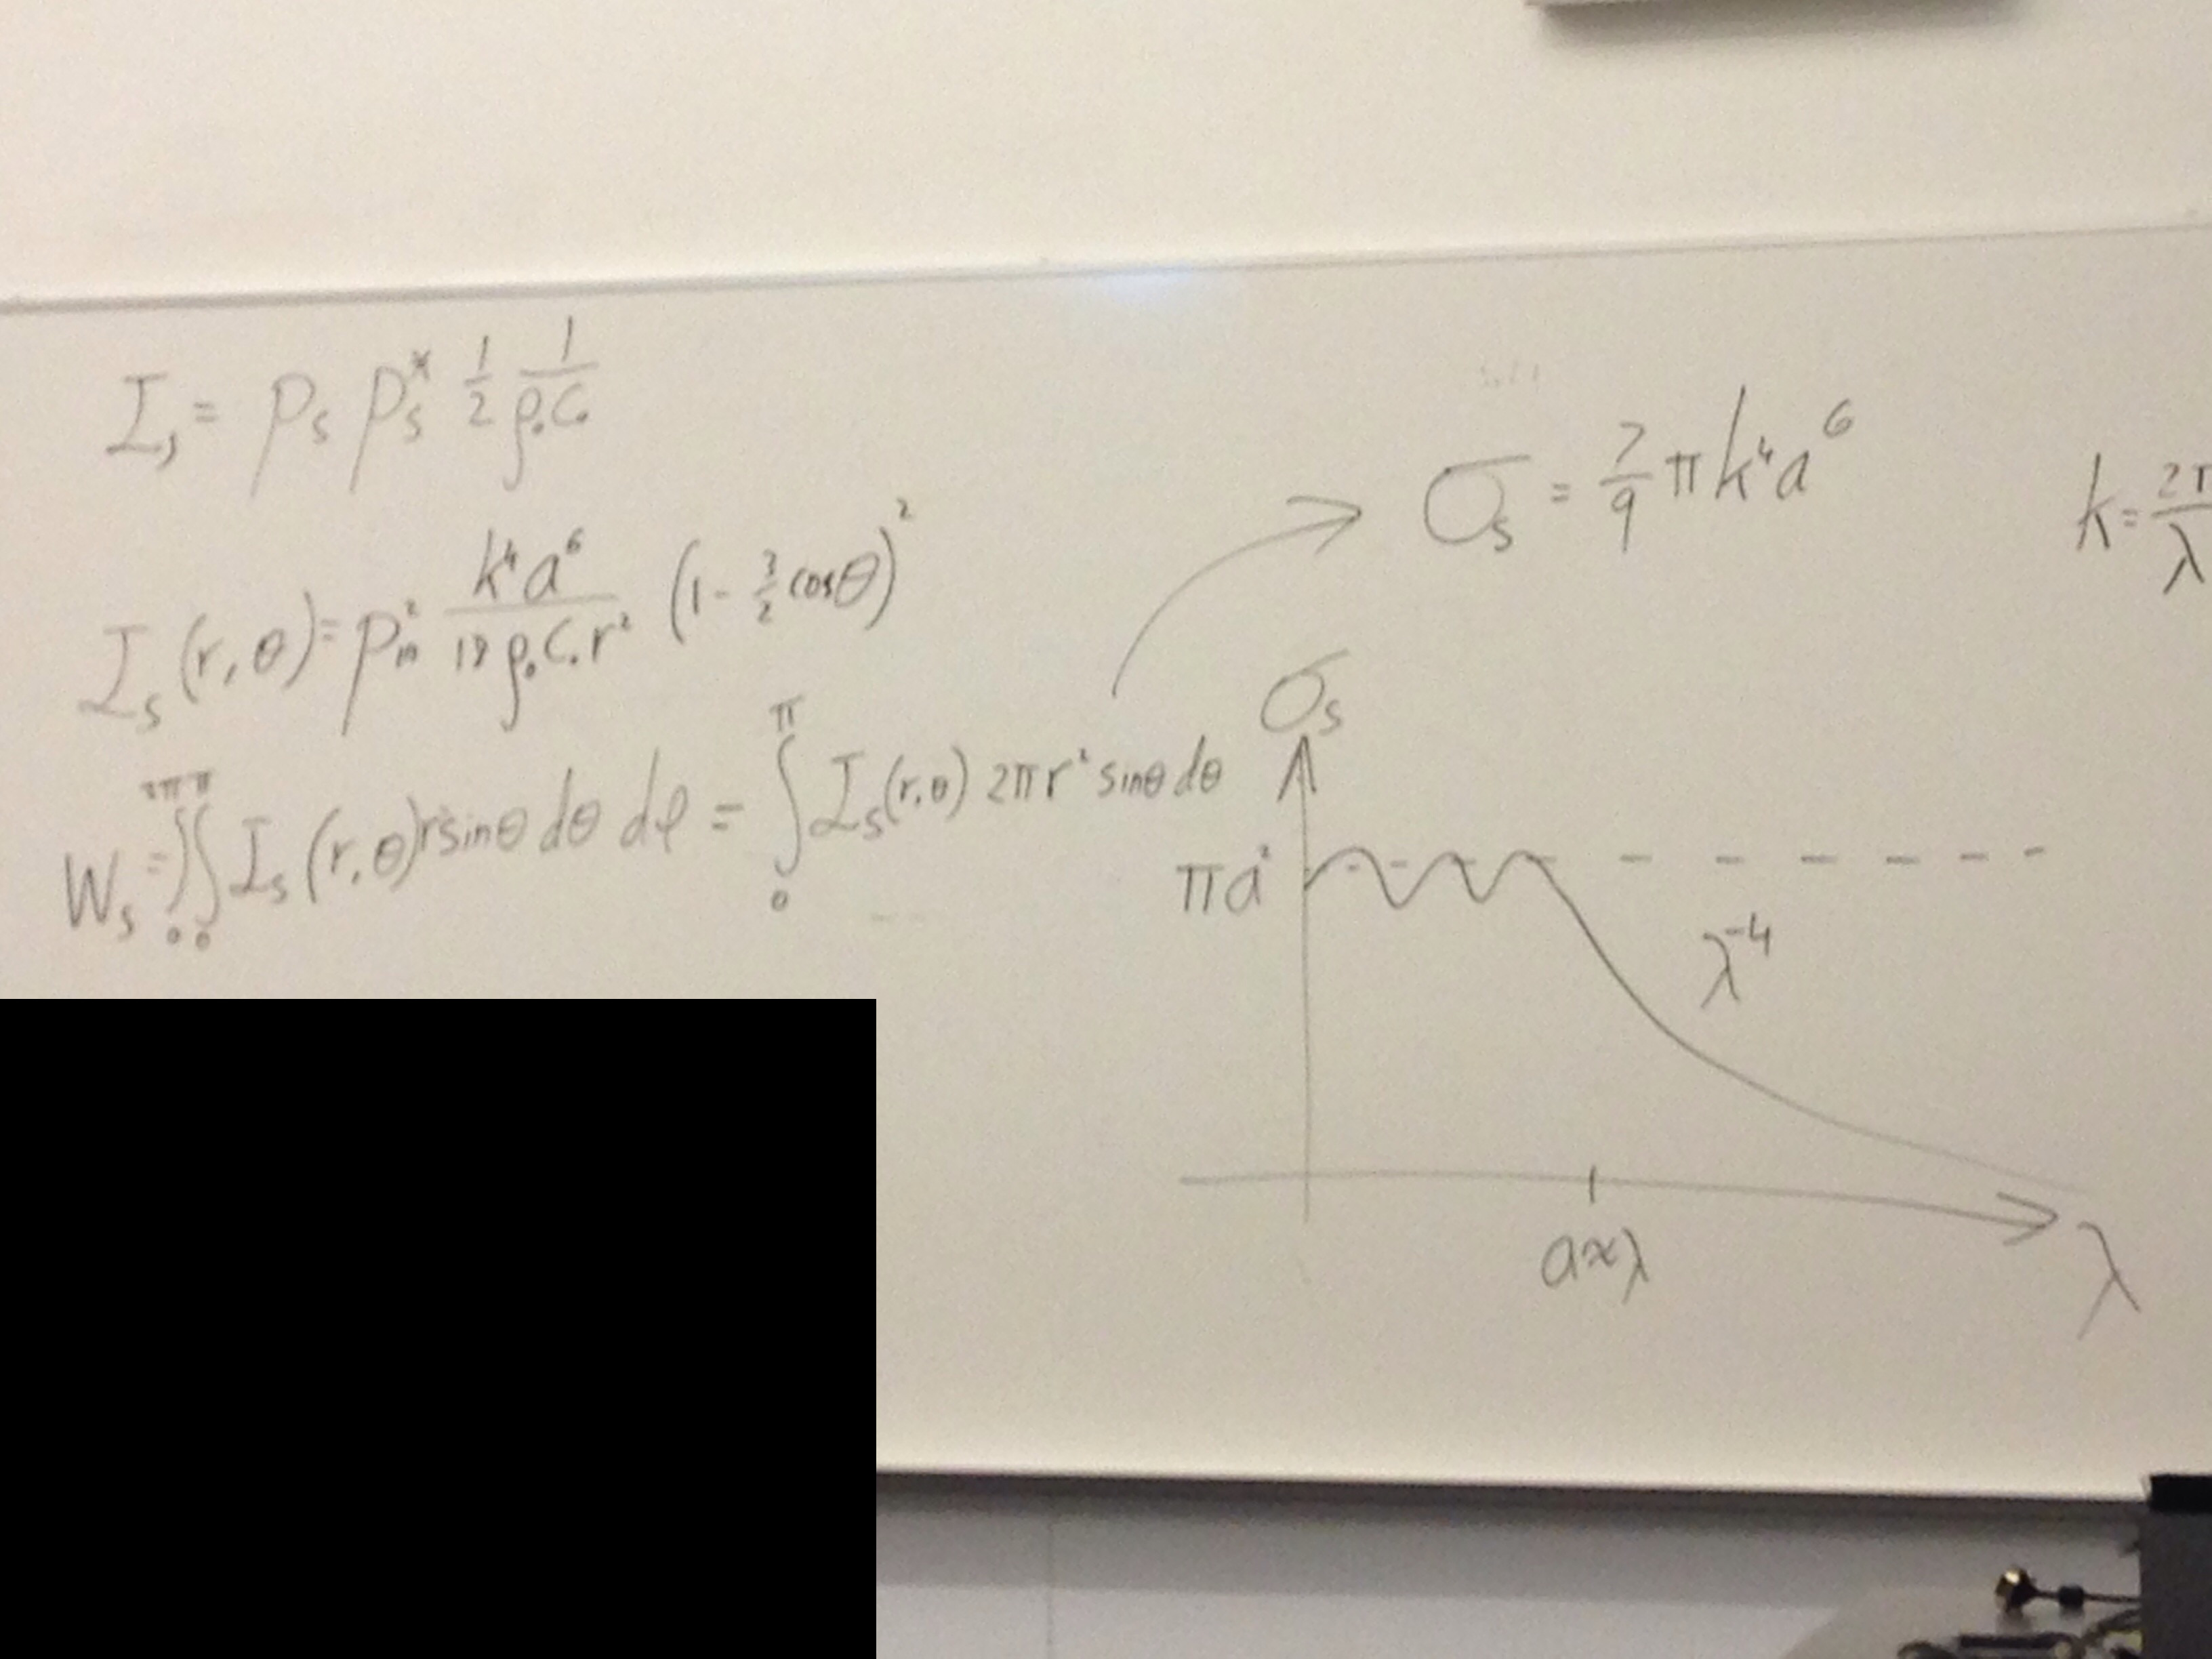 I_s = p_s p_s^* 1/2 1/(ρ₀c₀)
I_s(r,θ) = p_in^2 k^4a^6/(18ρ₀c₀r^2) (1 - 3/2 cosθ)^2
W_s = ∫_0^2π∫_0^π I_s(r,θ)r^2sinθ dθ dφ = ∫_0^π I_s(r,θ) 2πr^2 sinθ dθ
σ_s = 7/9 πk^4a^6
k = 2π/λ
σ_s
πa^2
λ^-4
a≈λ
λ